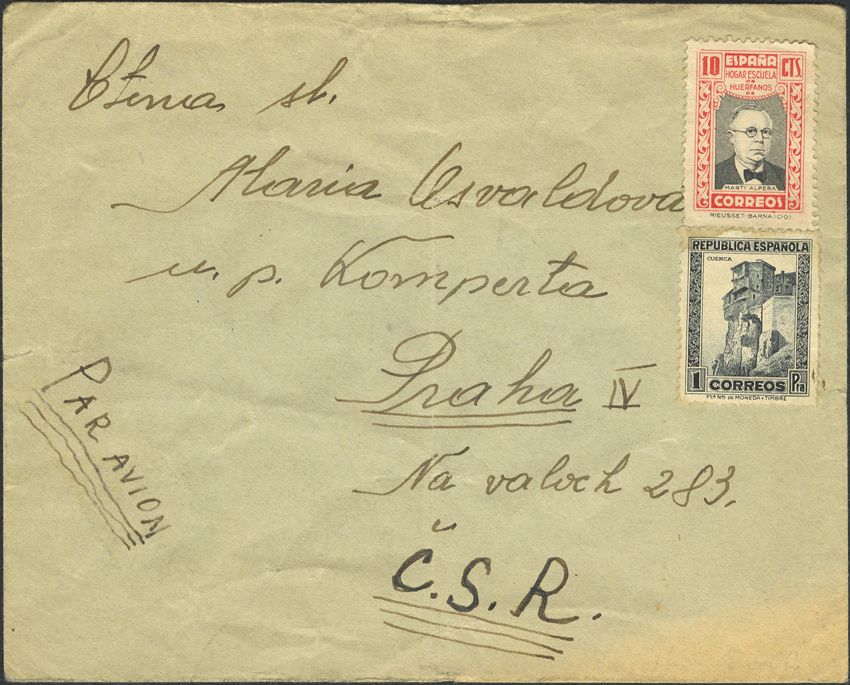 Ctěná sl.
Maria Osvaldova
u. p. Komperta
Praha IV
Na valoch 283.
Č.S.R.
PAR AVION
10 ESPAÑA CTS.
HOGAR ESCUELA
DE
HUERFANOS
DE
MARTI ALPERA
CORREOS
RIEUSSET-BARNA
REPUBLICA ESPAÑOLA
CUENCA
1 CORREOS Pta
DE MONEDA Y TIMBRE